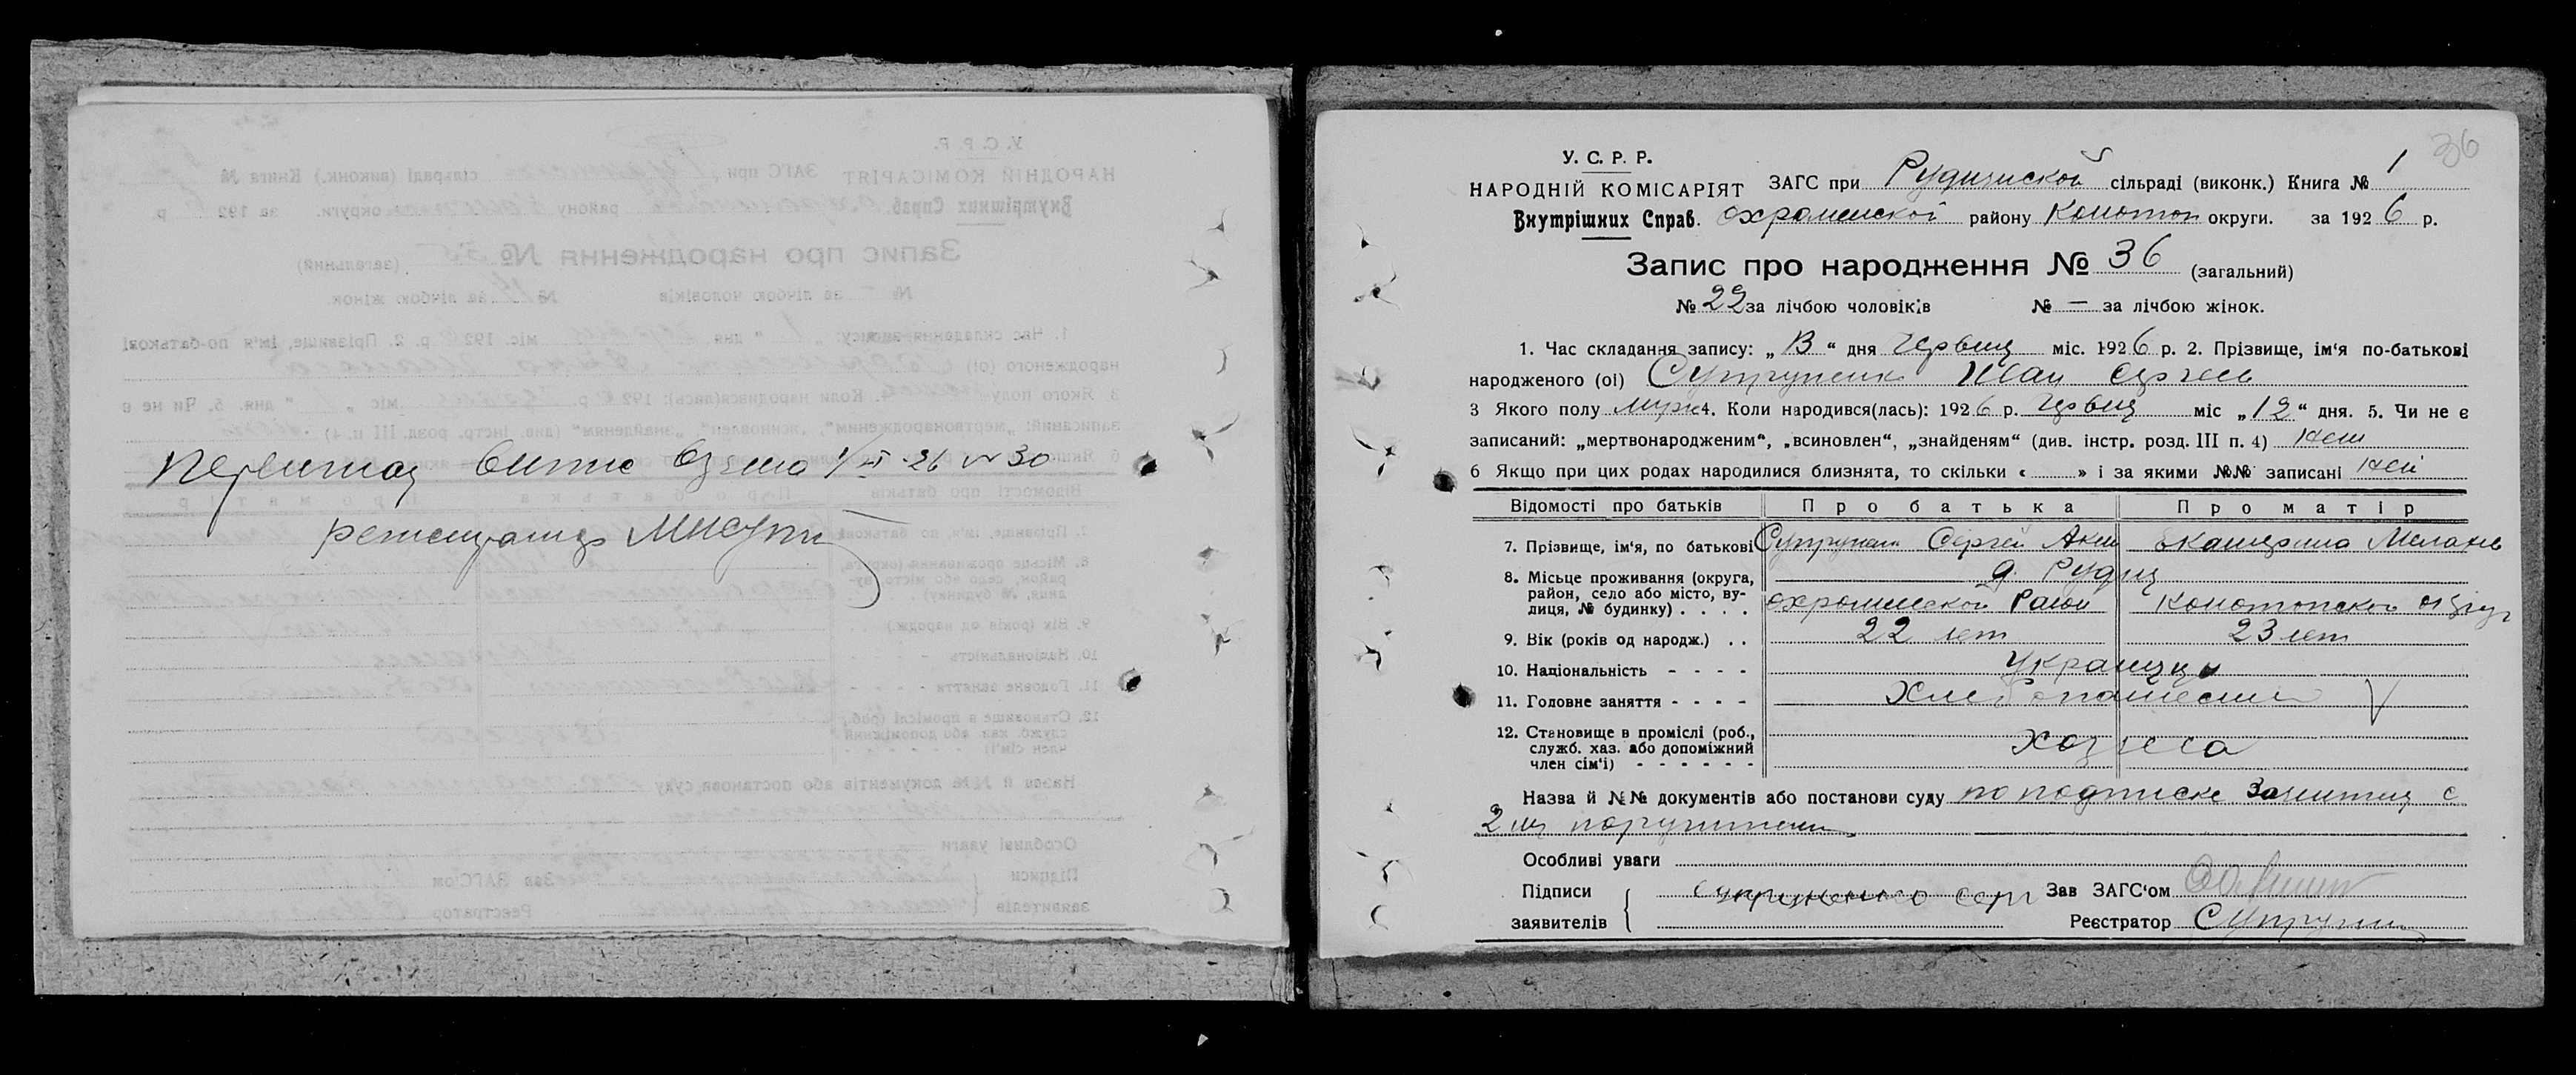 витис взято 1/VI-26 № 30
36
У. С. Р. Р.
НАРОДНІЙ КОМІСАРІЯТ
Внутрішних Справ.
ЗАГС при Рудинской сільраді (виконк.) Книга № 1
охромеиской району Конотоп округи. за 1926 р.
Запис про народження № 36 (загальний)
№ 22 за лічбою чоловіків № — за лічбою жінок.
1. Час складання запису: „13“ дня Червня міс. 1926 р. 2. Прізвище, ім'я по-батькові
народженого (ої) Супруненко Иван Сергеев
3 Якого полу мужс 4. Коли народився(лась): 1926 р. Червня міс „12“ дня. 5. Чи не є
записаний: „мертвонародженим“, „всиновлен“, „знайденям“ (див. інстр. розд. III п. 4) Нет
6 Якщо при цих родах народилися близнята, то скільки « » і за якими №№ записані Нет
Відомості про батьків Про батька Про матір
7. Прізвище, ім'я, по батькові Супрунен Сергей Аким Екатерина Малахов
8. Місьце проживання (округа, район, село або місто, вулиця, № будинку) д. Рудня
охромеевской Район Конотопской округ
9. Вік (років од народж.) 22 лет 23 лет
10. Національність Украинцы
11. Головне заняття Хлебопашество
12. Становище в проміслі (роб., служб. хаз. або допоміжний член сім'ї) хозяева
Назва й №№ документів або постанови суду по подписке Заявителя с
2 мя поручителями
Особливі уваги
Підписи заявителів Супруненко Серг Зав ЗАГС'ом
Реєстратор Супрун